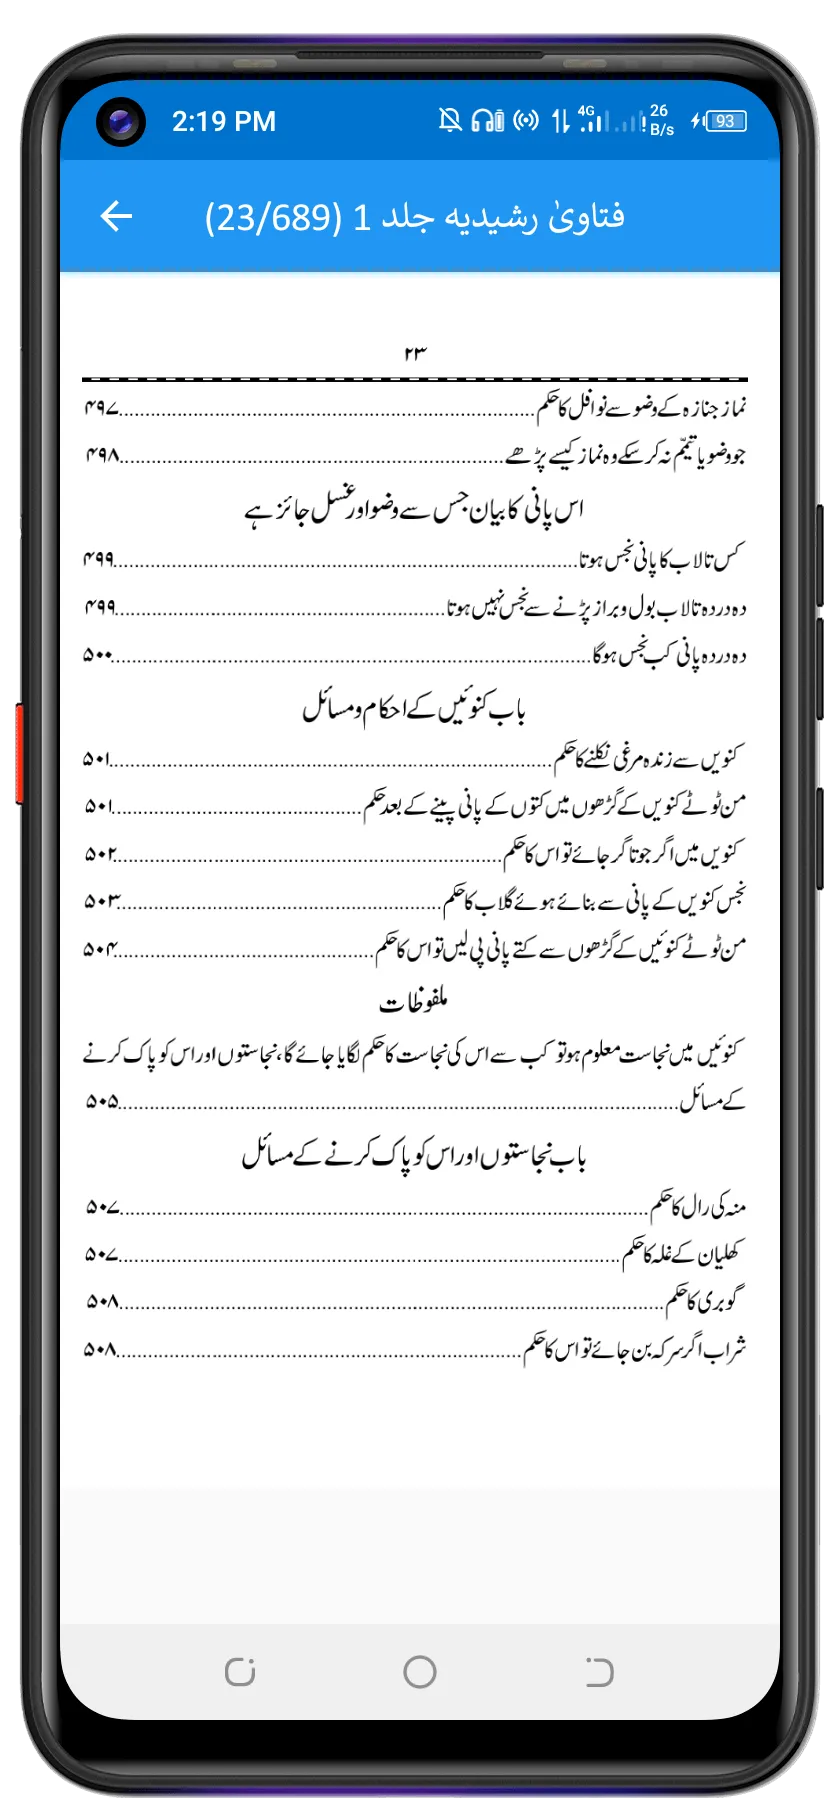 2:19 PM 4G 26 B/s 93
فتاویٰ رشیدیہ جلد 1 (23/689)
۲۳
نماز جنازہ کے وضو سے نوافل کا حکم ۴۹۷
جو وضو یا تیمّم نہ کر سکے وہ نماز کیسے پڑھے ۴۹۸
اس پانی کا بیان جس سے وضو اور غسل جائز ہے
کس تالاب کا پانی نجس ہوتا ۴۹۹
دہ دردہ تالاب بول و براز پڑنے سے نجس نہیں ہوتا ۴۹۹
دہ دردہ پانی کب نجس ہوگا ۵۰۰
باب کنوئیں کے احکام و مسائل
کنویں سے زندہ مرغی نکلنے کا حکم ۵۰۱
من ٹوٹے کنویں کے گڑھوں میں کتوں کے پانی پینے کے بعد حکم ۵۰۱
کنویں میں اگر جوتا گر جائے تو اس کا حکم ۵۰۲
نجس کنویں کے پانی سے بنائے ہوئے گلاب کا حکم ۵۰۳
من ٹوٹے کنوئیں کے گڑھوں سے کتے پانی پی لیں تو اس کا حکم ۵۰۴
ملفوظات
کنوئیں میں نجاست معلوم ہو تو کب سے اس کی نجاست کا حکم لگایا جائے گا، نجاستوں اور اس کو پاک کرنے
کے مسائل ۵۰۵
باب نجاستوں اور اس کو پاک کرنے کے مسائل
منہ کی رال کا حکم ۵۰۷
کھلیان کے غلہ کا حکم ۵۰۷
گوبری کا حکم ۵۰۸
شراب اگر سرکہ بن جائے تو اس کا حکم ۵۰۸